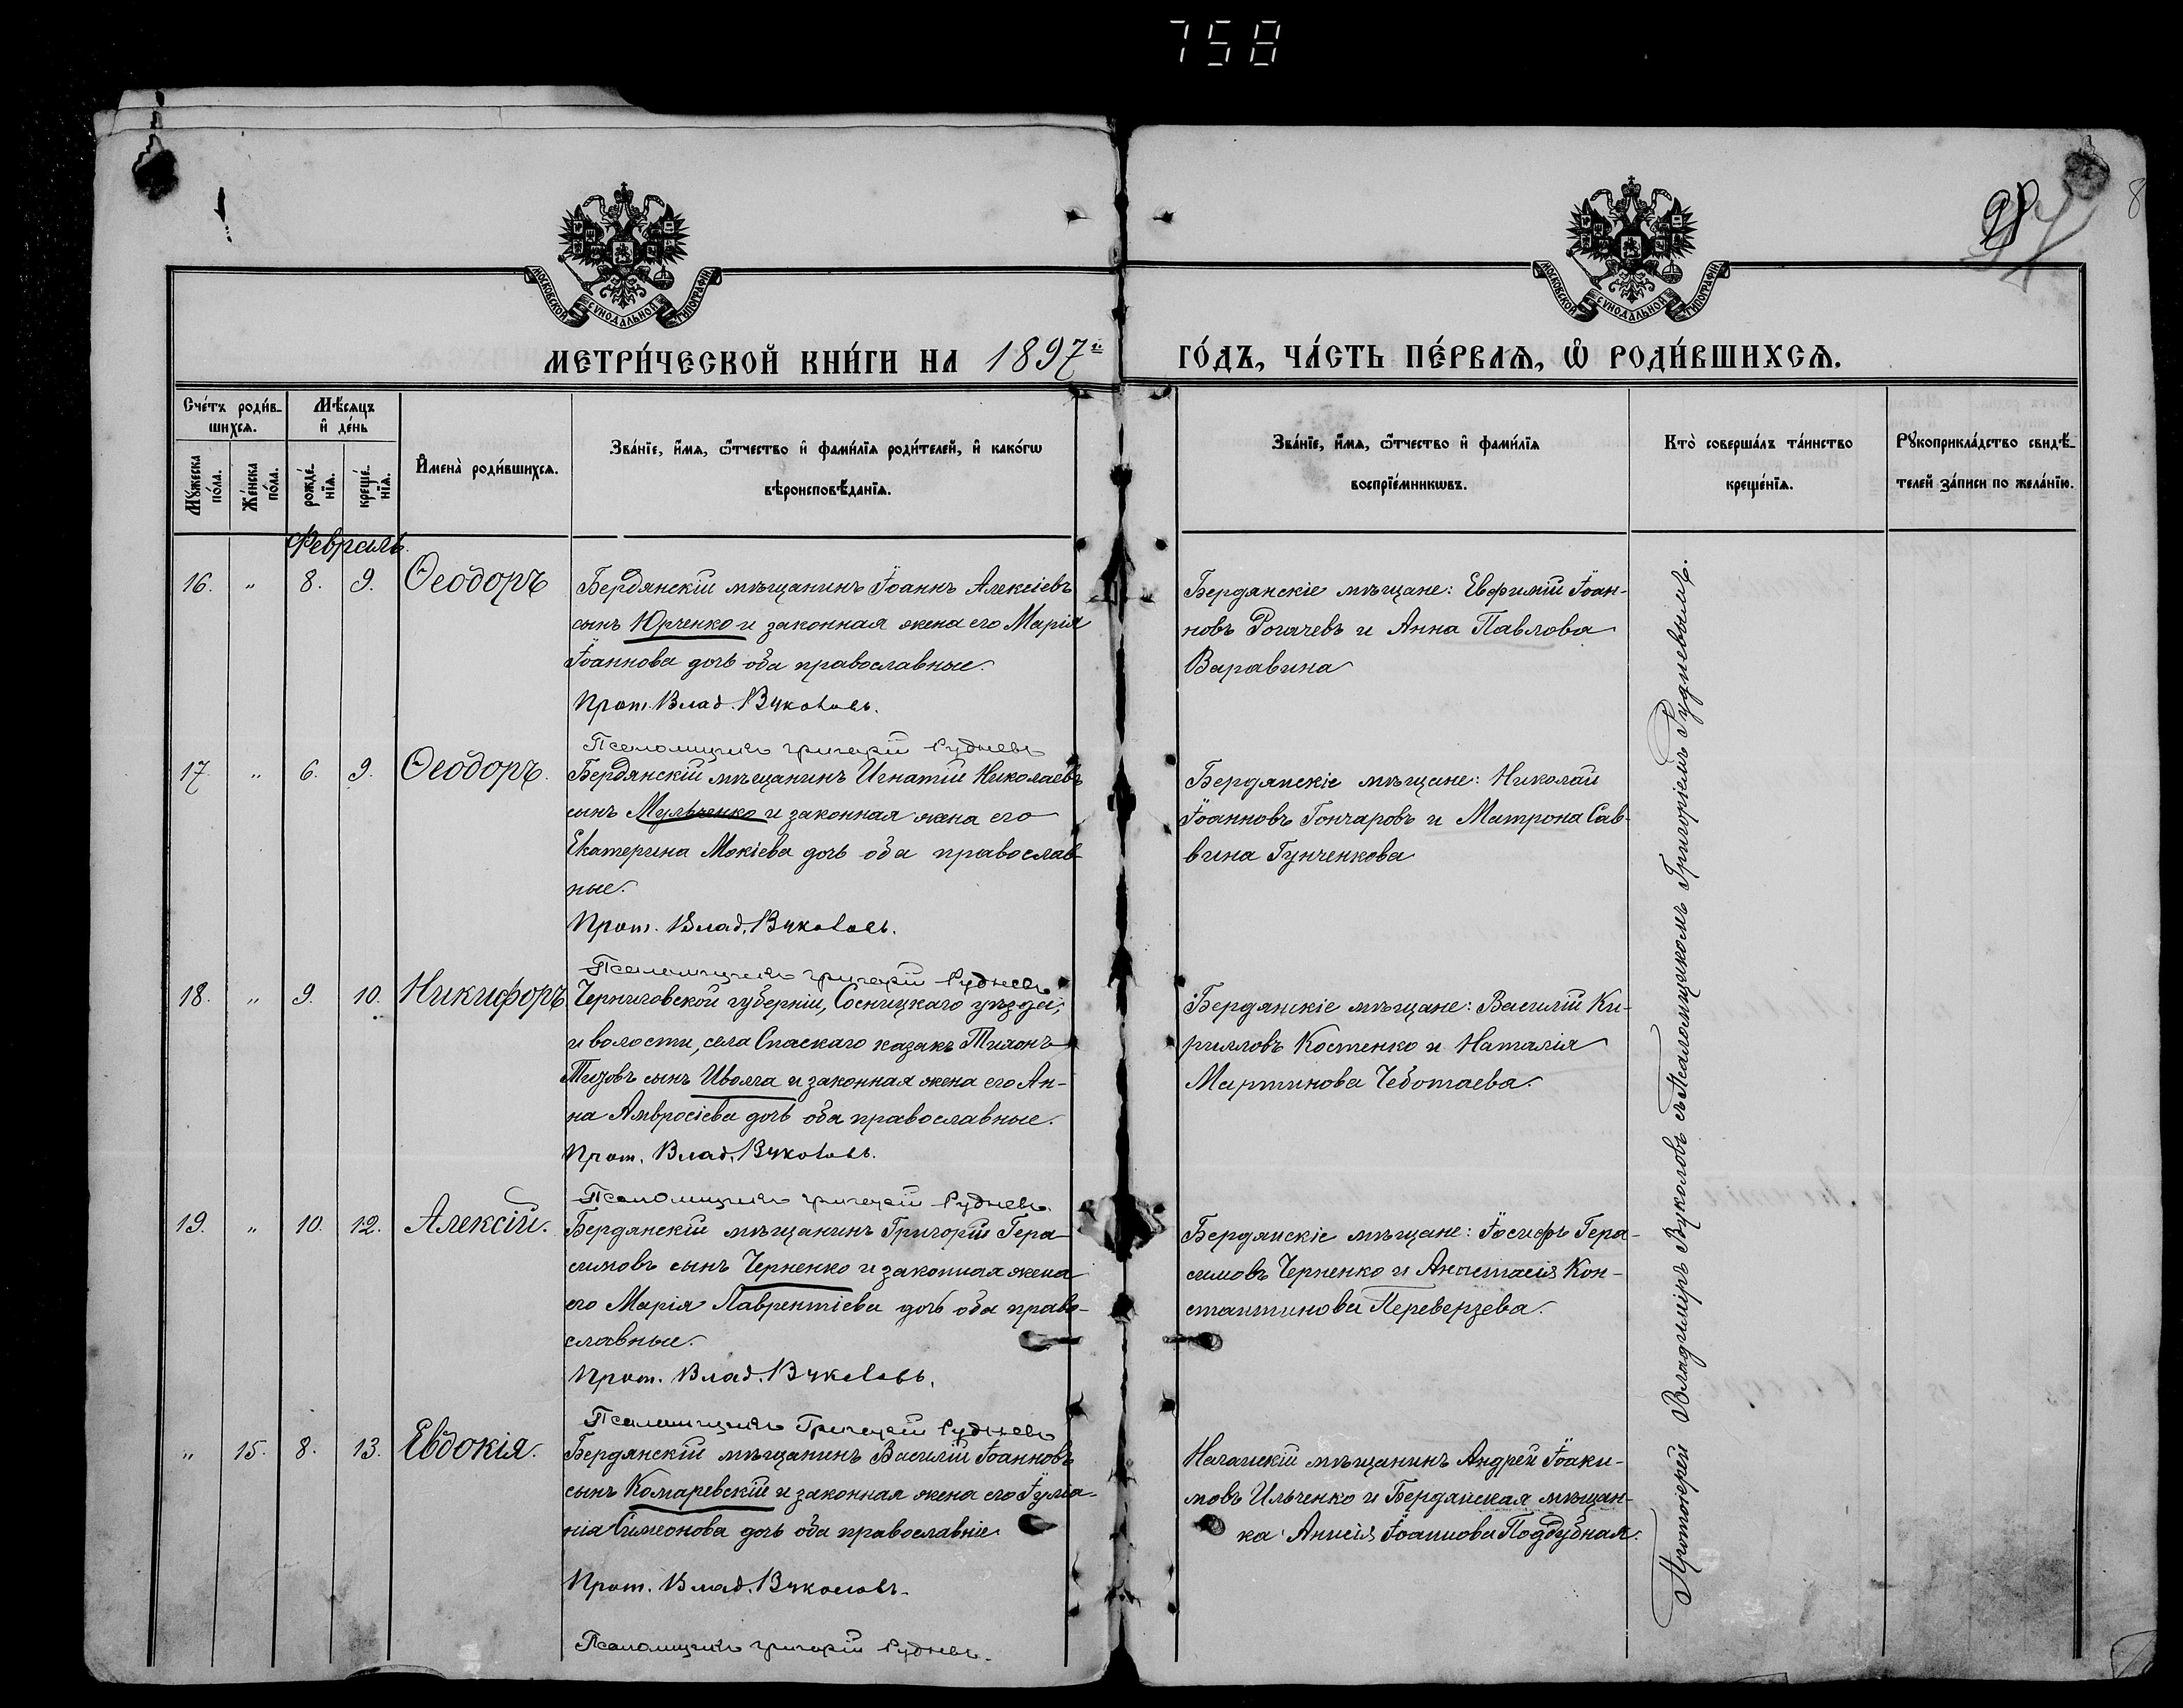 758
МОСКОВСКОЙ СУНОДАЛЬНОЙ ТИПОГРАФІИ
МОСКОВСКОЙ СУНОДАЛЬНОЙ ТИПОГРАФІИ
МЕТРИ́ЧЕСКОЙ КНИ́ГИ НА 1897й ГО́ДЪ, ЧА́СТЬ ПЕ́РВАѦ, Ѽ РОДИ́ВШИХСѦ.
Сче́тъ роди́в-
шихсѧ.
Мѣ́сѧцъ
и҆ де́нь
Мꙋ́жеска
по́ла.
Же́нска
по́ла.
рожде́-
нїѧ.
креще́-
нїѧ.
И҆мена̀ роди́вшихсѧ.
Зва́нїе, и҆́мѧ, ѻ҆́тчество и҆ фами́лїѧ роди́телей, и҆ како́гѡ
вѣроисповѣ́данїѧ.
Зва́нїе, и҆́мѧ, ѻ҆́тчество и҆ фами́лїѧ
воспрїе́мникѡвъ.
Кто̀ соверша́лъ та́инство
креще́нїѧ.
Рꙋкоприкла́дство свидѣ́-
телей за́писи по жела́нїю.
Февраль.
16. „ 8. 9. Ѳеодоръ
Бердянскій мѣщанинъ Іоаннъ Алексіевъ
сынъ Юрченко и законная жена его Марія
Іоаннова дочь оба православные.
Прот. Влад. Вуколовъ.
Псаломщикъ Григорій Рудневъ
Бердянскіе мѣщане: Евфимій Іоан-
новъ Рогачевъ и Анна Павлова
Варавина
17. „ 6. 9. Ѳеодоръ.
Бердянскій мѣщанинъ Игнатій Николаевъ
сынъ Мульченко и законная жена его
Екатерина Мокіева дочь оба православ-
ные.
Прот. Влад. Вуколовъ.
Псаломщикъ Григорій Рудневъ
Бердянскіе мѣщане: Николай
Іоанновъ Гончаровъ и Матрона Сав-
вина Гунченкова
18. „ 9. 10. Никифоръ
Черниговской губерніи, Сосницкаго уѣзда,
и волости, села Спаскаго казакъ Тихонъ
сынъ Иволга и законная жена его Ан-
на Амвросіева дочь оба православные.
Прот. Влад. Вуколовъ.
Псаломщикъ Григорій Рудневъ.
Бердянскіе мѣщане: Василій Ки-
рилловъ Костенко и Наталія
Мартинова Чеботаева.
19. „ 10. 12. Алексій.
Бердянскій мѣщанинъ Григорій Гера-
симовъ сынъ Черненко и законная жена
его Марія Лаврентіева дочь оба право-
славные.
Прот. Влад. Вуколовъ.
Псаломщикъ Григорій Рудневъ
Бердянскіе мѣщане: Іосифъ Гера-
симовъ Черненко и Анастасія Кон-
стантинова Переверзева.
„ 15. 8. 13. Евдокія.
Бердянскій мѣщанинъ Василій Іоанновъ
сынъ Комаревскій и законная жена его Іулиа-
нія Симеонова дочь оба православніе
Прот. Влад. Вуколовъ.
Псаломщикъ Григорій Рудневъ.
Ногайскій мѣщанинъ Андрей Іоаки-
мовъ Ильченко и Бердянская мѣщан-
ка Анисія Іоаннова Поддубная.
Протоіерей Владиміръ Вуколовъ съ Псаломщикомъ Григоріемъ Рудневымъ.